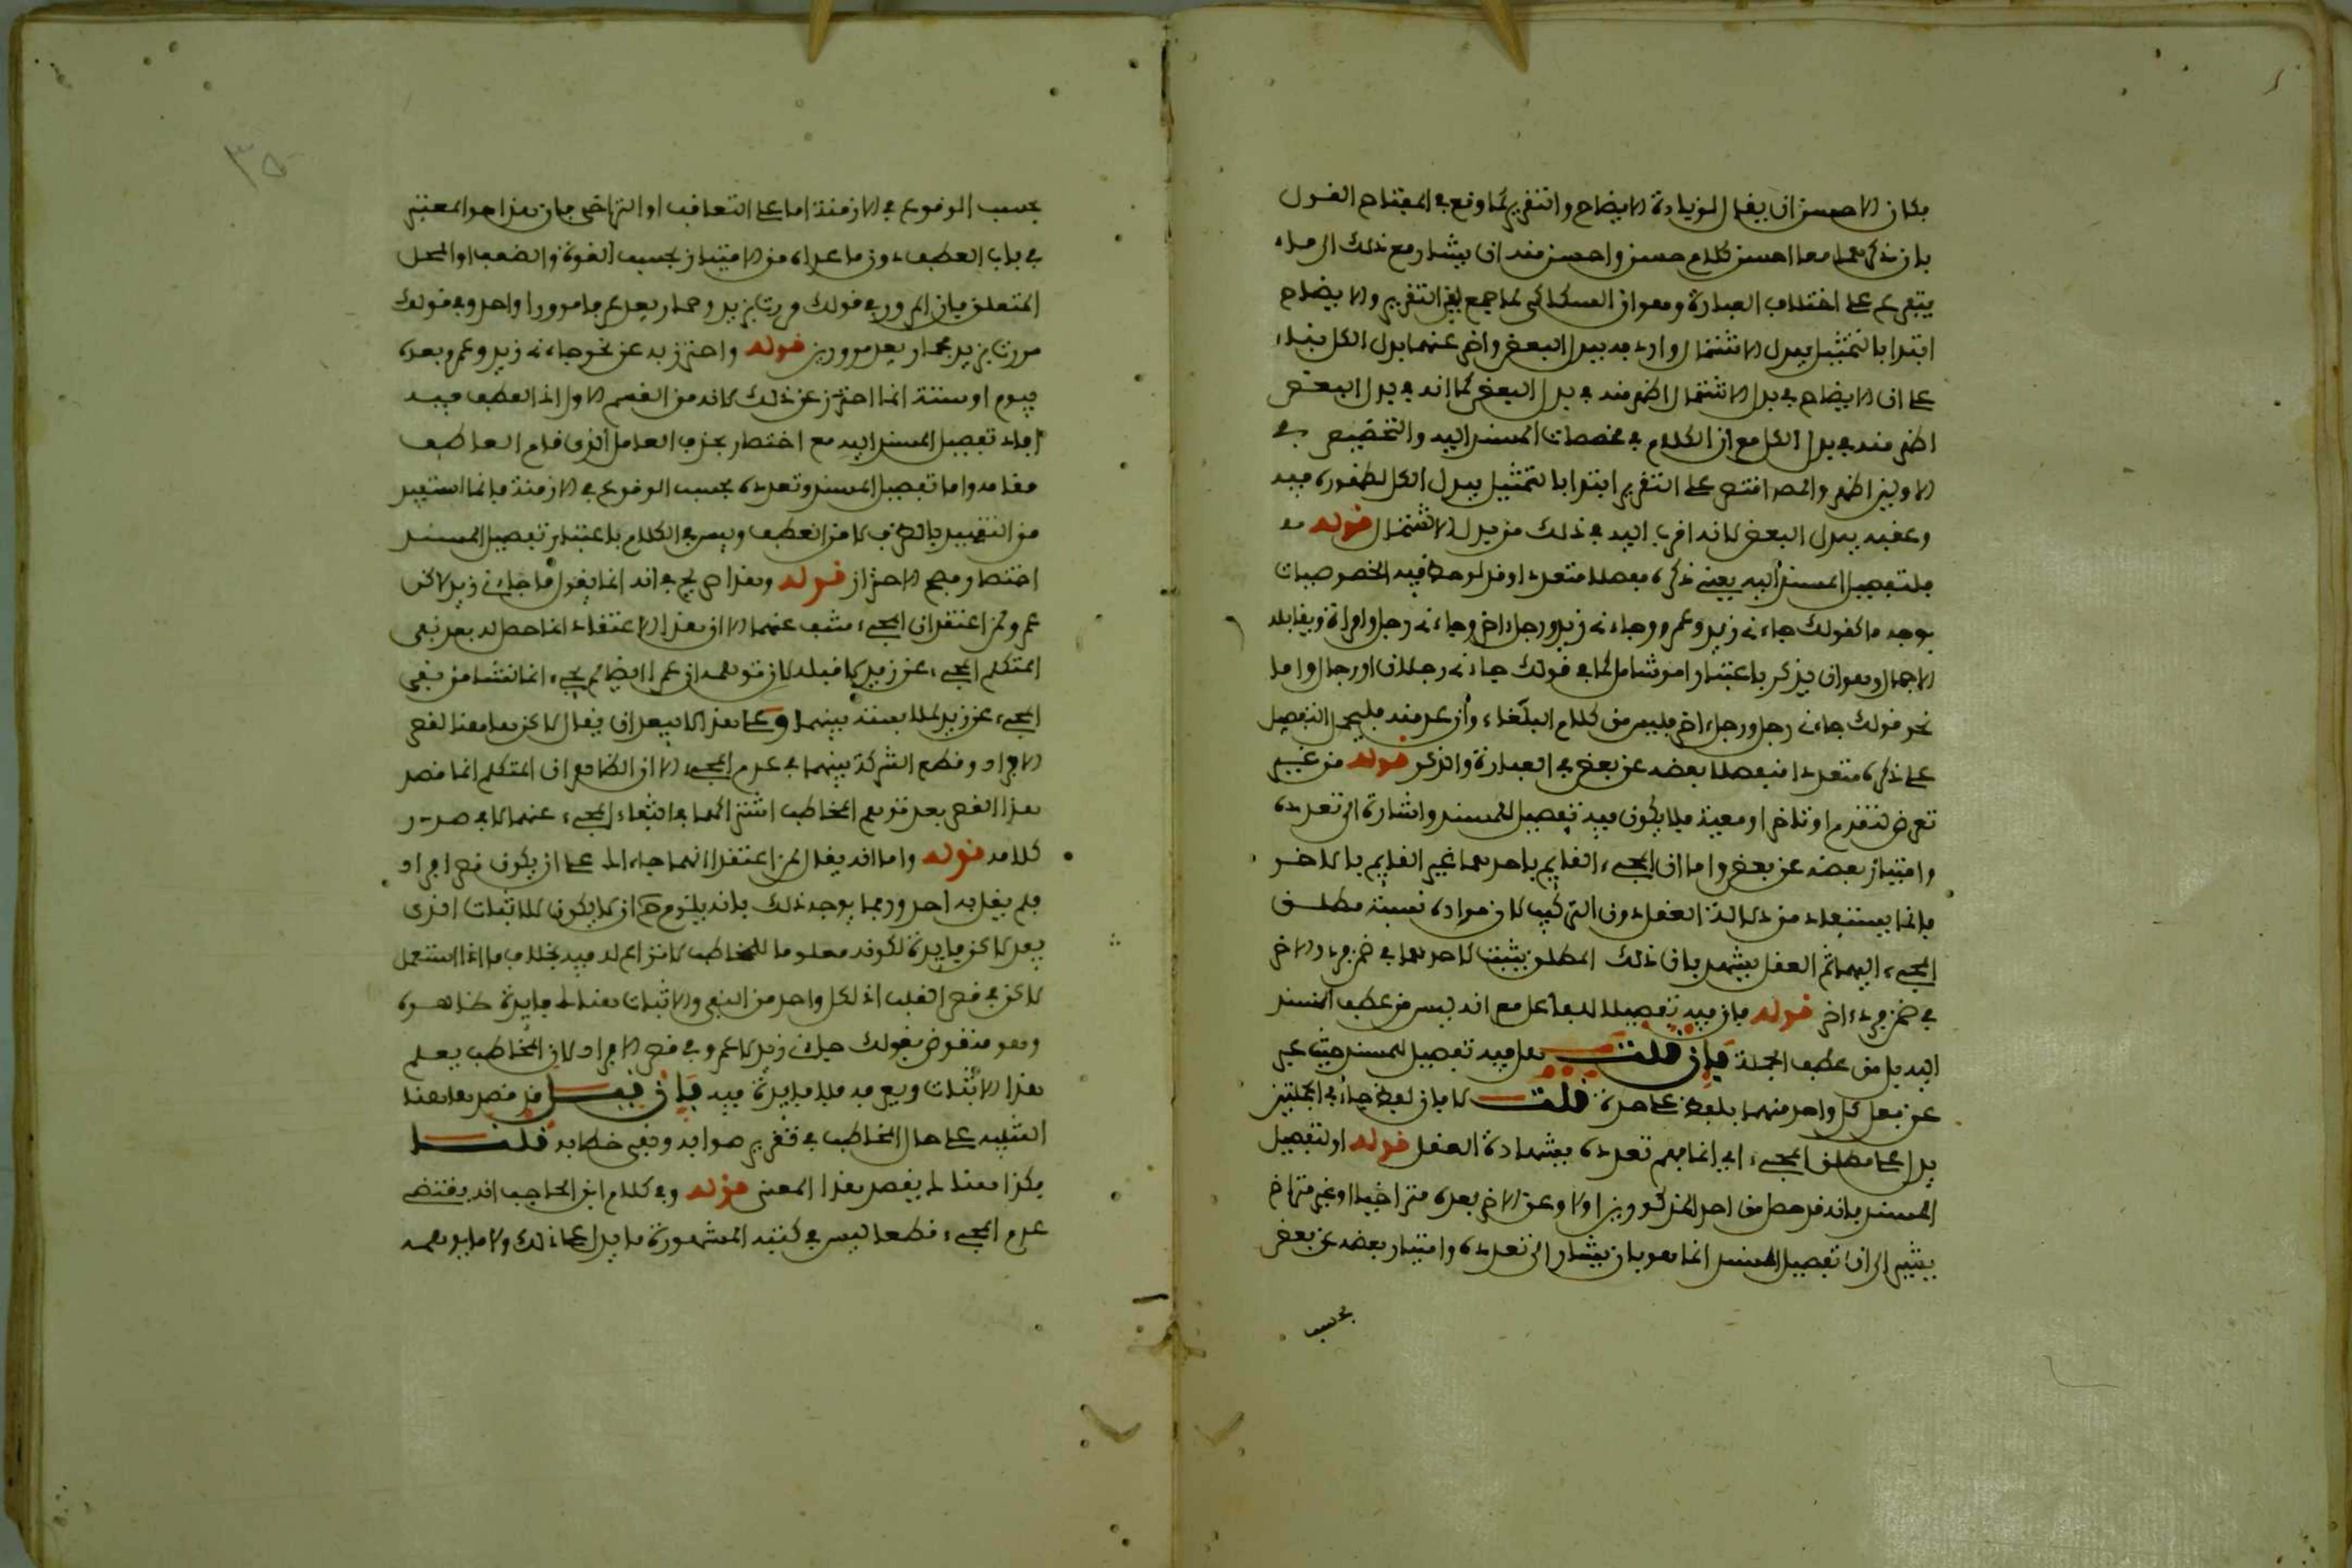 فكان الاحسن ان يقال لزيادة الايضاح والتقرير كما وقع في المفتاح القول
بان ذكرهما معا احسن كلام حسن واحسن منه ان يشار مع ذلك الى ما
يتفرع على اختلاف العبارة وهو ان السكاكي لما جمع بين التقرير والايضاح
ابتدا بالتمثيل ببدل الاشتمال واردفه ببدل البعض واخر عنهما بدل الكل بناء
على ان الايضاح في بدل الاشتمال اظهر منه في بدل البعض كما انه في بدل البعض
اظهر منه في بدل الكل مع ان الكلام في مخصصات المسند اليه والتخصيص في
الاولين اظهر والمص اقتصر على التقرير ابتدا بالتمثيل ببدل الكل لظهوره فيه
وعقبه ببدل البعض لانه اقرب اليه في ذلك من بدل الاشتمال قوله
فلتفصيل المسند اليه يعني ذكره مفصلا متعددا وقد لوحظ فيه الخصوصيات
بوجه ما كقولك جاءني زيد وعمرو وجاءني زيد ورجل اخر وجاءني رجل وامراة ويقابله
الاجمال وهو ان يذكر باعتبار امر شامل كما في قولك جاءني رجلان او رجال واما
نحو قولك جاءني رجل ورجل اخر فليس من كلام البلغاء وان عد منه فليحمل التفصيل
على ذكره متعددا منفصلا بعضه عن بعض في العبارة والذكر قوله من غير
تعرض لتقدم او تاخر او معية فلا يكون فيه تفصيل للمسند واشارة الى تعدده
وامتياز بعضه عن بعض واما ان المجيء القايم باحدهما غير القايم بالاخر
فانما يستفاد من دلالة العقل دون التركيب لان مفاده نسبة مطلق
المجيء اليهما ثم العقل يشهد بان ذلك المطلق يثبت لاحدهما في ضمن فرد والاخر
في ضمن فرد اخر قوله فان فيه تفصيلا للفاعل مع انه ليس من عطف المسند
اليه بل من عطف الجملة فان قلت هل فيه تفصيل للمسند حيث عبر
عن فعل كل واحد منهما بلفظ على حدة قلت لا فان لفظ جاء في الجملتين
يدل على مطلق المجيء اي انما فهم تعدده بشهادة العقل قوله او لتفصيل
المسند بانه قد حصل من احد المذكورين اولا وعن الاخر بعده متراخيا او غير متراخ
يشير الى ان تفصيل المسند انما هو بان يشار الى تعدده وامتياز بعضه عن بعض
بحسب
٣٥
بحسب الوقوع في الازمنة اما على التعاقب او التراخي فان هذا هو المعتبر
في باب العطف دون ما عداه من الامتياز بحسب القوة والضعف او المحل
المتعلق فان المرور في قولك مررت بزيد وحمار يعد عرفا مرورا واحدا وفي قولك
مررت بزيد فحمار يعد مرورين قوله واحترز به عن نحو جاءني زيد وعمرو بعده
بيوم او سنة انما احترز عن ذلك لانه من القسم الاول اذ العطف فيه
افاد تفصيل المسند اليه مع اختصار بحذف العامل الذي قام العاطف
مقامه واما تفصيل المسند وتعدده بحسب الوقوع في الازمنة فانما استفيد
من التقييد بالظرف لا من العطف وليس في الكلام باعتبار تفصيل المسند
اختصار فصح الاحتراز قوله وهذا صريح في انه انما يقول ما جاءني زيد لاكن
عمرو من اعتقد ان المجيء منتف عنهما الا ان هذا الاعتقاد انما حصل له بعد نفي
المتكلم المجيء عن زيد لا قبله لان توهمه ان عمرا ايضا لم يجيء انما نشا من نفي
المجيء عن زيد لملابسة بينهما وعلى هذا لا يبعد ان يقال لاكن هاهنا لقصر
الافراد وقطع الشركة بينهما في عدم المجيء الا ان الظاهر ان المتكلم انما قصد
هذا القصر بعد توهم المخاطب اشتراكهما في انتفاء المجيء عنهما لا في صدر
كلامه قوله واما انه يقال لمن اعتقد انهما جاءاك على ان يكون قصر افراد
فلم يقل به احد وربما يوجه ذلك بانه يلزم ح ان لا يكون للاثبات الذي
بعد لاكن فايدة لكونه معلوما للمخاطب لا نزاع له فيه بخلاف ما اذا استعمل
لاكن في قصر القلب اذ لكل واحد من النفي والاثبات هناك فايدة ظاهرة
وهو منقوض بقولك جاءني زيد لا عمرو في قصر الافراد لان المخاطب يعلم
هذا الاثبات ويعرفه فلا فايدة فيه فان قيل قد قصد هاهنا
التنبيه على حال المخاطب في تقرير صوابه ونفي خطابه قلنا
فكذا هناك يقصد هذا المعنى قوله وفي كلام ابن الحاجب انه يقتضي
عدم المجيء قطعا ليس في كتبه المشهورة ما يدل على ذلك ولا ما يوهمه